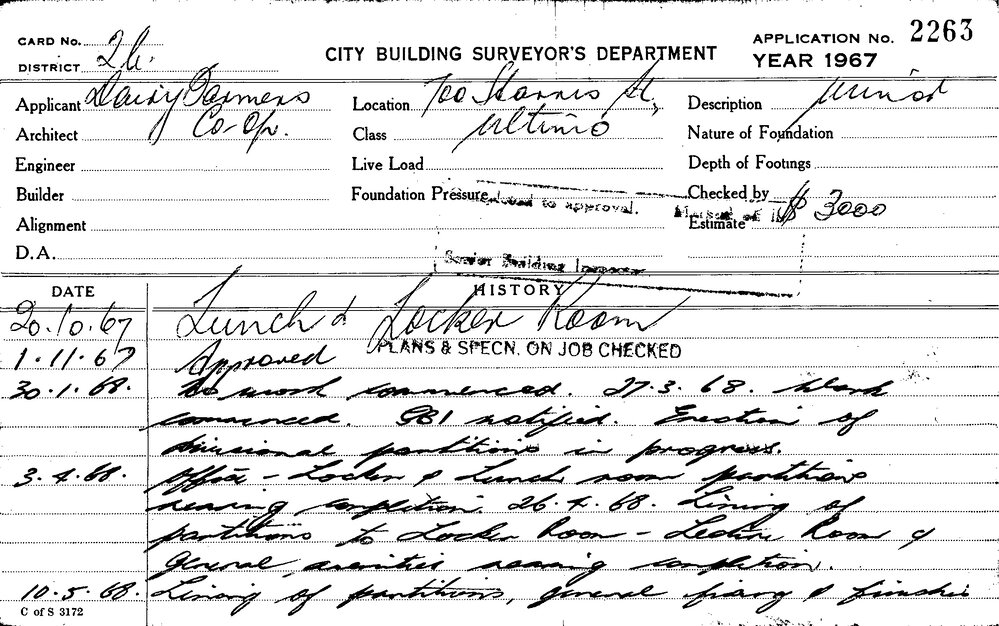 CARD No. 26.
DISTRICT
CITY BUILDING SURVEYOR'S DEPARTMENT
APPLICATION No. 2263
YEAR 1967
Applicant Dairy Farmers Location 700 Harris St., Description Minor
Architect Co-Op. Class Ultimo Nature of Foundation
Engineer Live Load Depth of Footings
Builder Foundation Pressure to approval. Checked by
Alignment Estimate $ 3000
D.A. Senior Building Inspector
DATE HISTORY
20.10.67 Lunch & Locker Room
1.11.67 Approved PLANS & SPECN. ON JOB CHECKED
30.1.68. No work commenced. 27.3.68. Work
commenced. GBI notified. Erection of
divisional partitions in progress.
3.4.68. Office - Locker & Lunch room partitions
nearing completion. 26.4.68. Lining of
partitions to Locker Room - Lecture Room &
General amenities nearing completion.
10.5.68. Lining of partitions, general fixing & finishes
C of S 3172